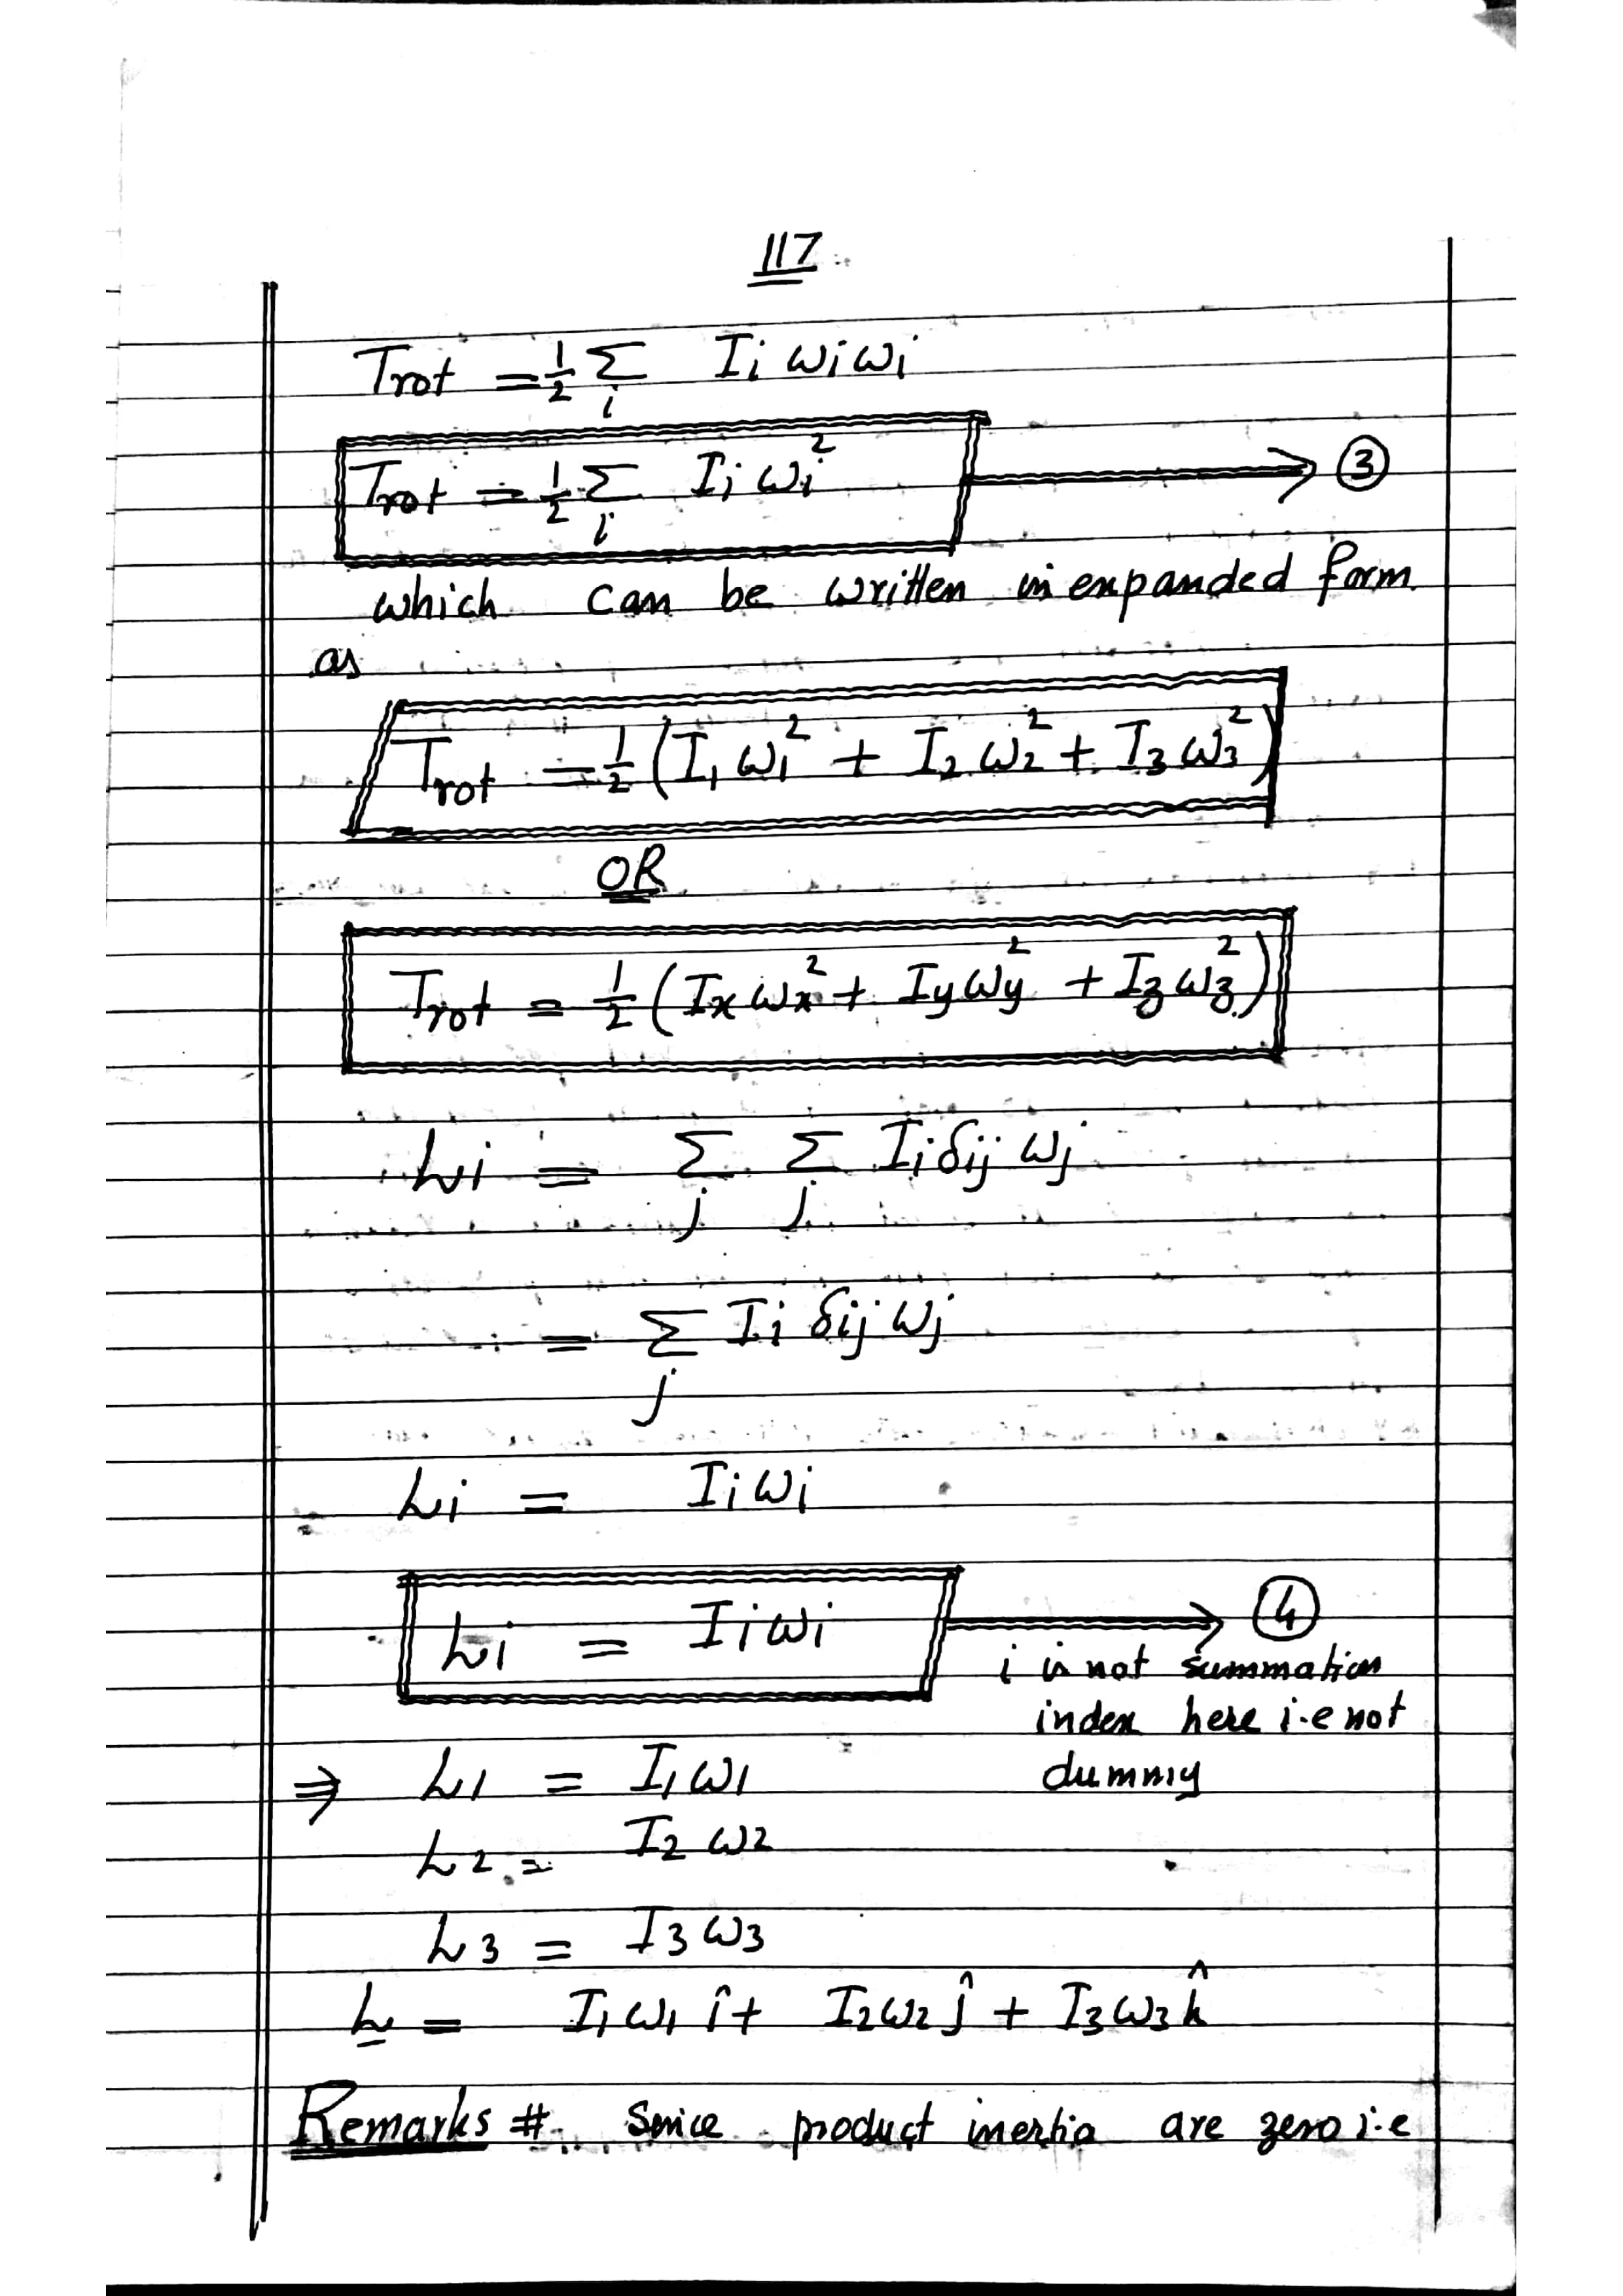 117
Trot = 1/2 Σ_i Ii ωi ωi
Trot = 1/2 Σ_i Ii ωi² → ③
which can be written in expanded form
as
Trot = 1/2 (I1 ω1² + I2 ω2² + I3 ω3²)
OR
Trot = 1/2 (Ix ωx² + Iy ωy² + Iz ωz²)
Li = Σ_j Σ_j Ii δij ωj
= Σ_j Ii δij ωj
Li = Ii ωi
Li = Ii ωi → ④
i is not summation
index here i.e not
dummy
⇒ L1 = I1 ω1
L2 = I2 ω2
L3 = I3 ω3
L = I1 ω1 î + I2 ω2 ĵ + I3 ω3 k̂
Remarks # Since product inertia are zero i.e